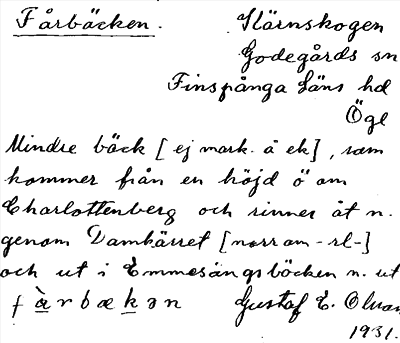 Fårbäcken. Skärnskogen
Godegårds sn
Finspånga läns hd
Ögl
Mindre bäck [ej mark. å ek], som
kommer från en höjd ö om
Charlottenberg och rinner åt n.
genom Damkärret [norr om -rl-]
och ut i Emmesängsbäcken n. ut
f à r b æ k ə n Gustaf E. Olvan
1931.